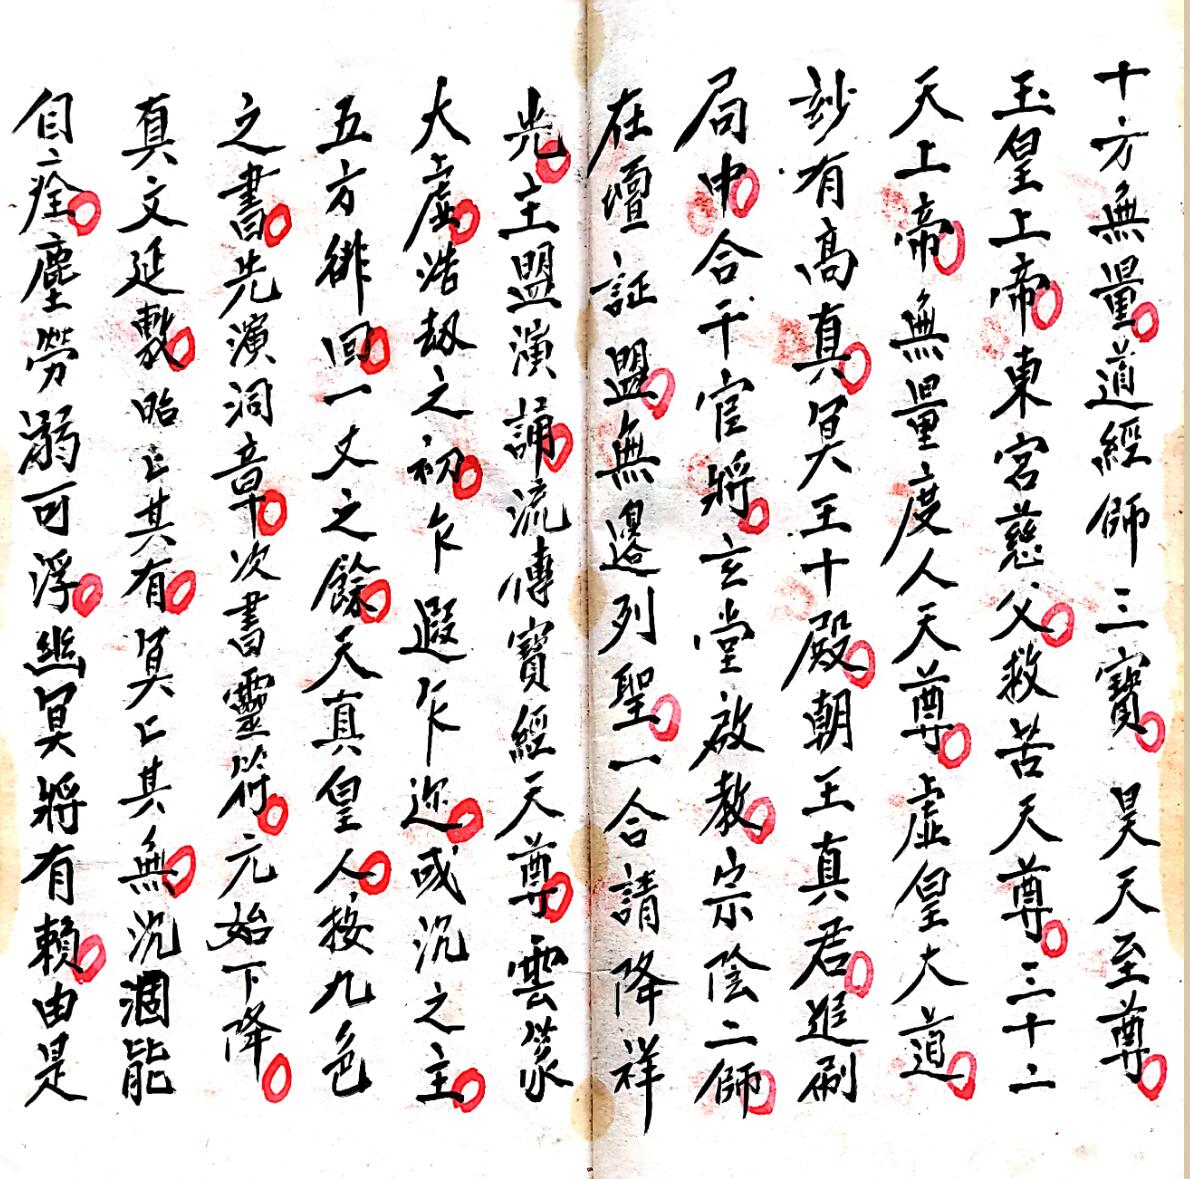 十方無量道經師三寶昊天至尊
玉皇上帝東宮慈父救苦天尊三十二
天上帝無量度人天尊虛皇大道
玅有高真冥王十殿朝王真君進刷
局申合干官將玄堂啟教宗陰二師
在壇証盟無邊列聖一合請降祥
光主盟演誦流傳寶經天尊雲篆
大虛浩劫之初乍遐乍迩或沉之主
五方徘回一丈之餘天真皇人按九色
之書先演洞章次書靈符元始下降
真文延敷昭亡其有冥亡其無沉涸能
自痊塵勞溺可浮幽冥將有賴由是